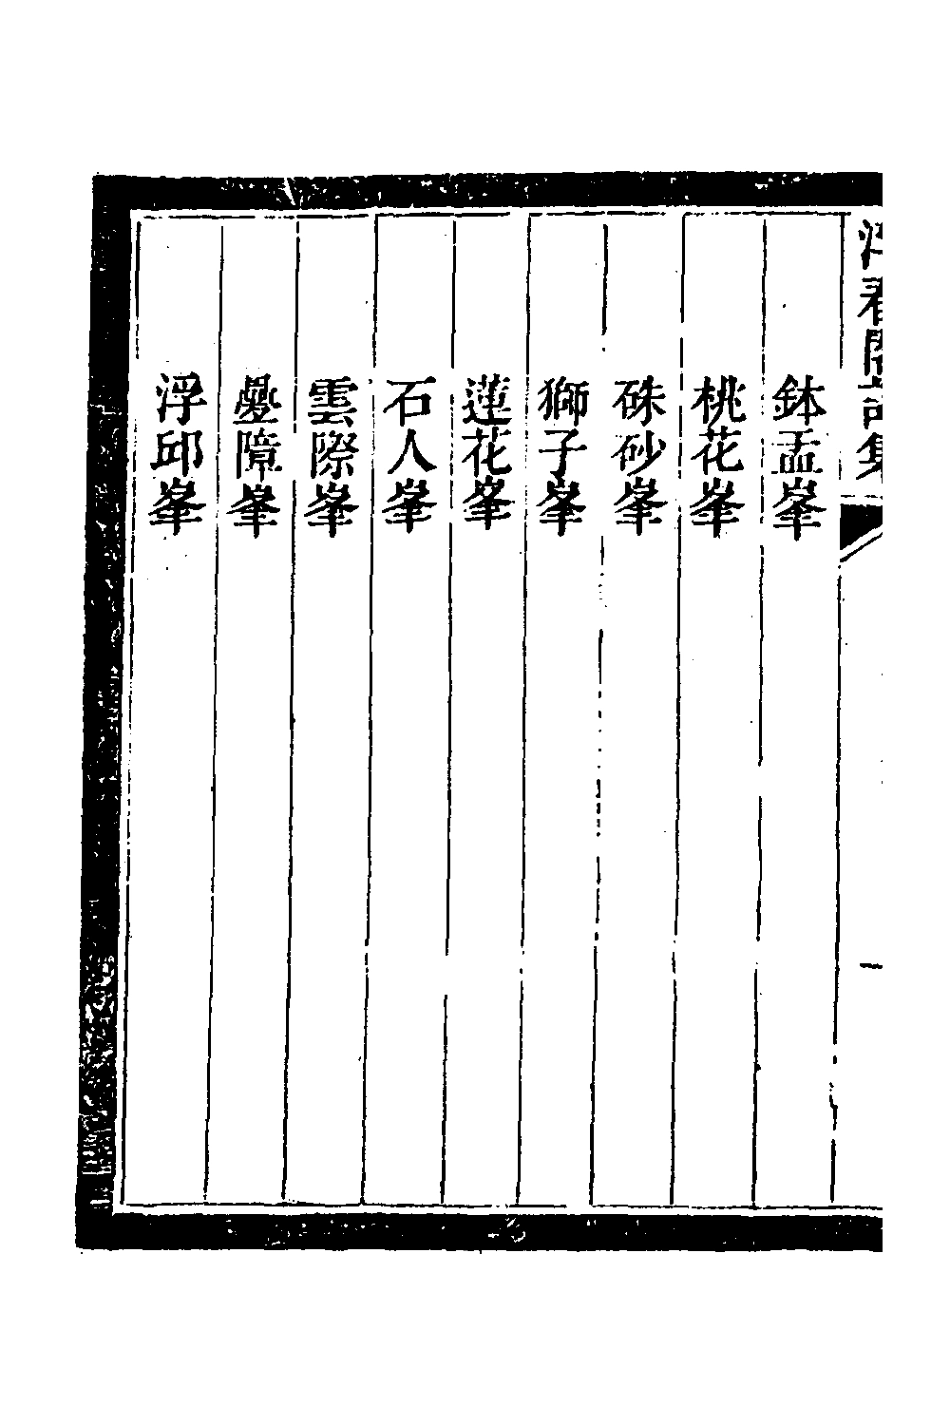 鉢盂峯
桃花峯
硃砂峯
獅子峯
蓮花峯
石人峯
雲際峯
疊障峯
浮邱峯
一